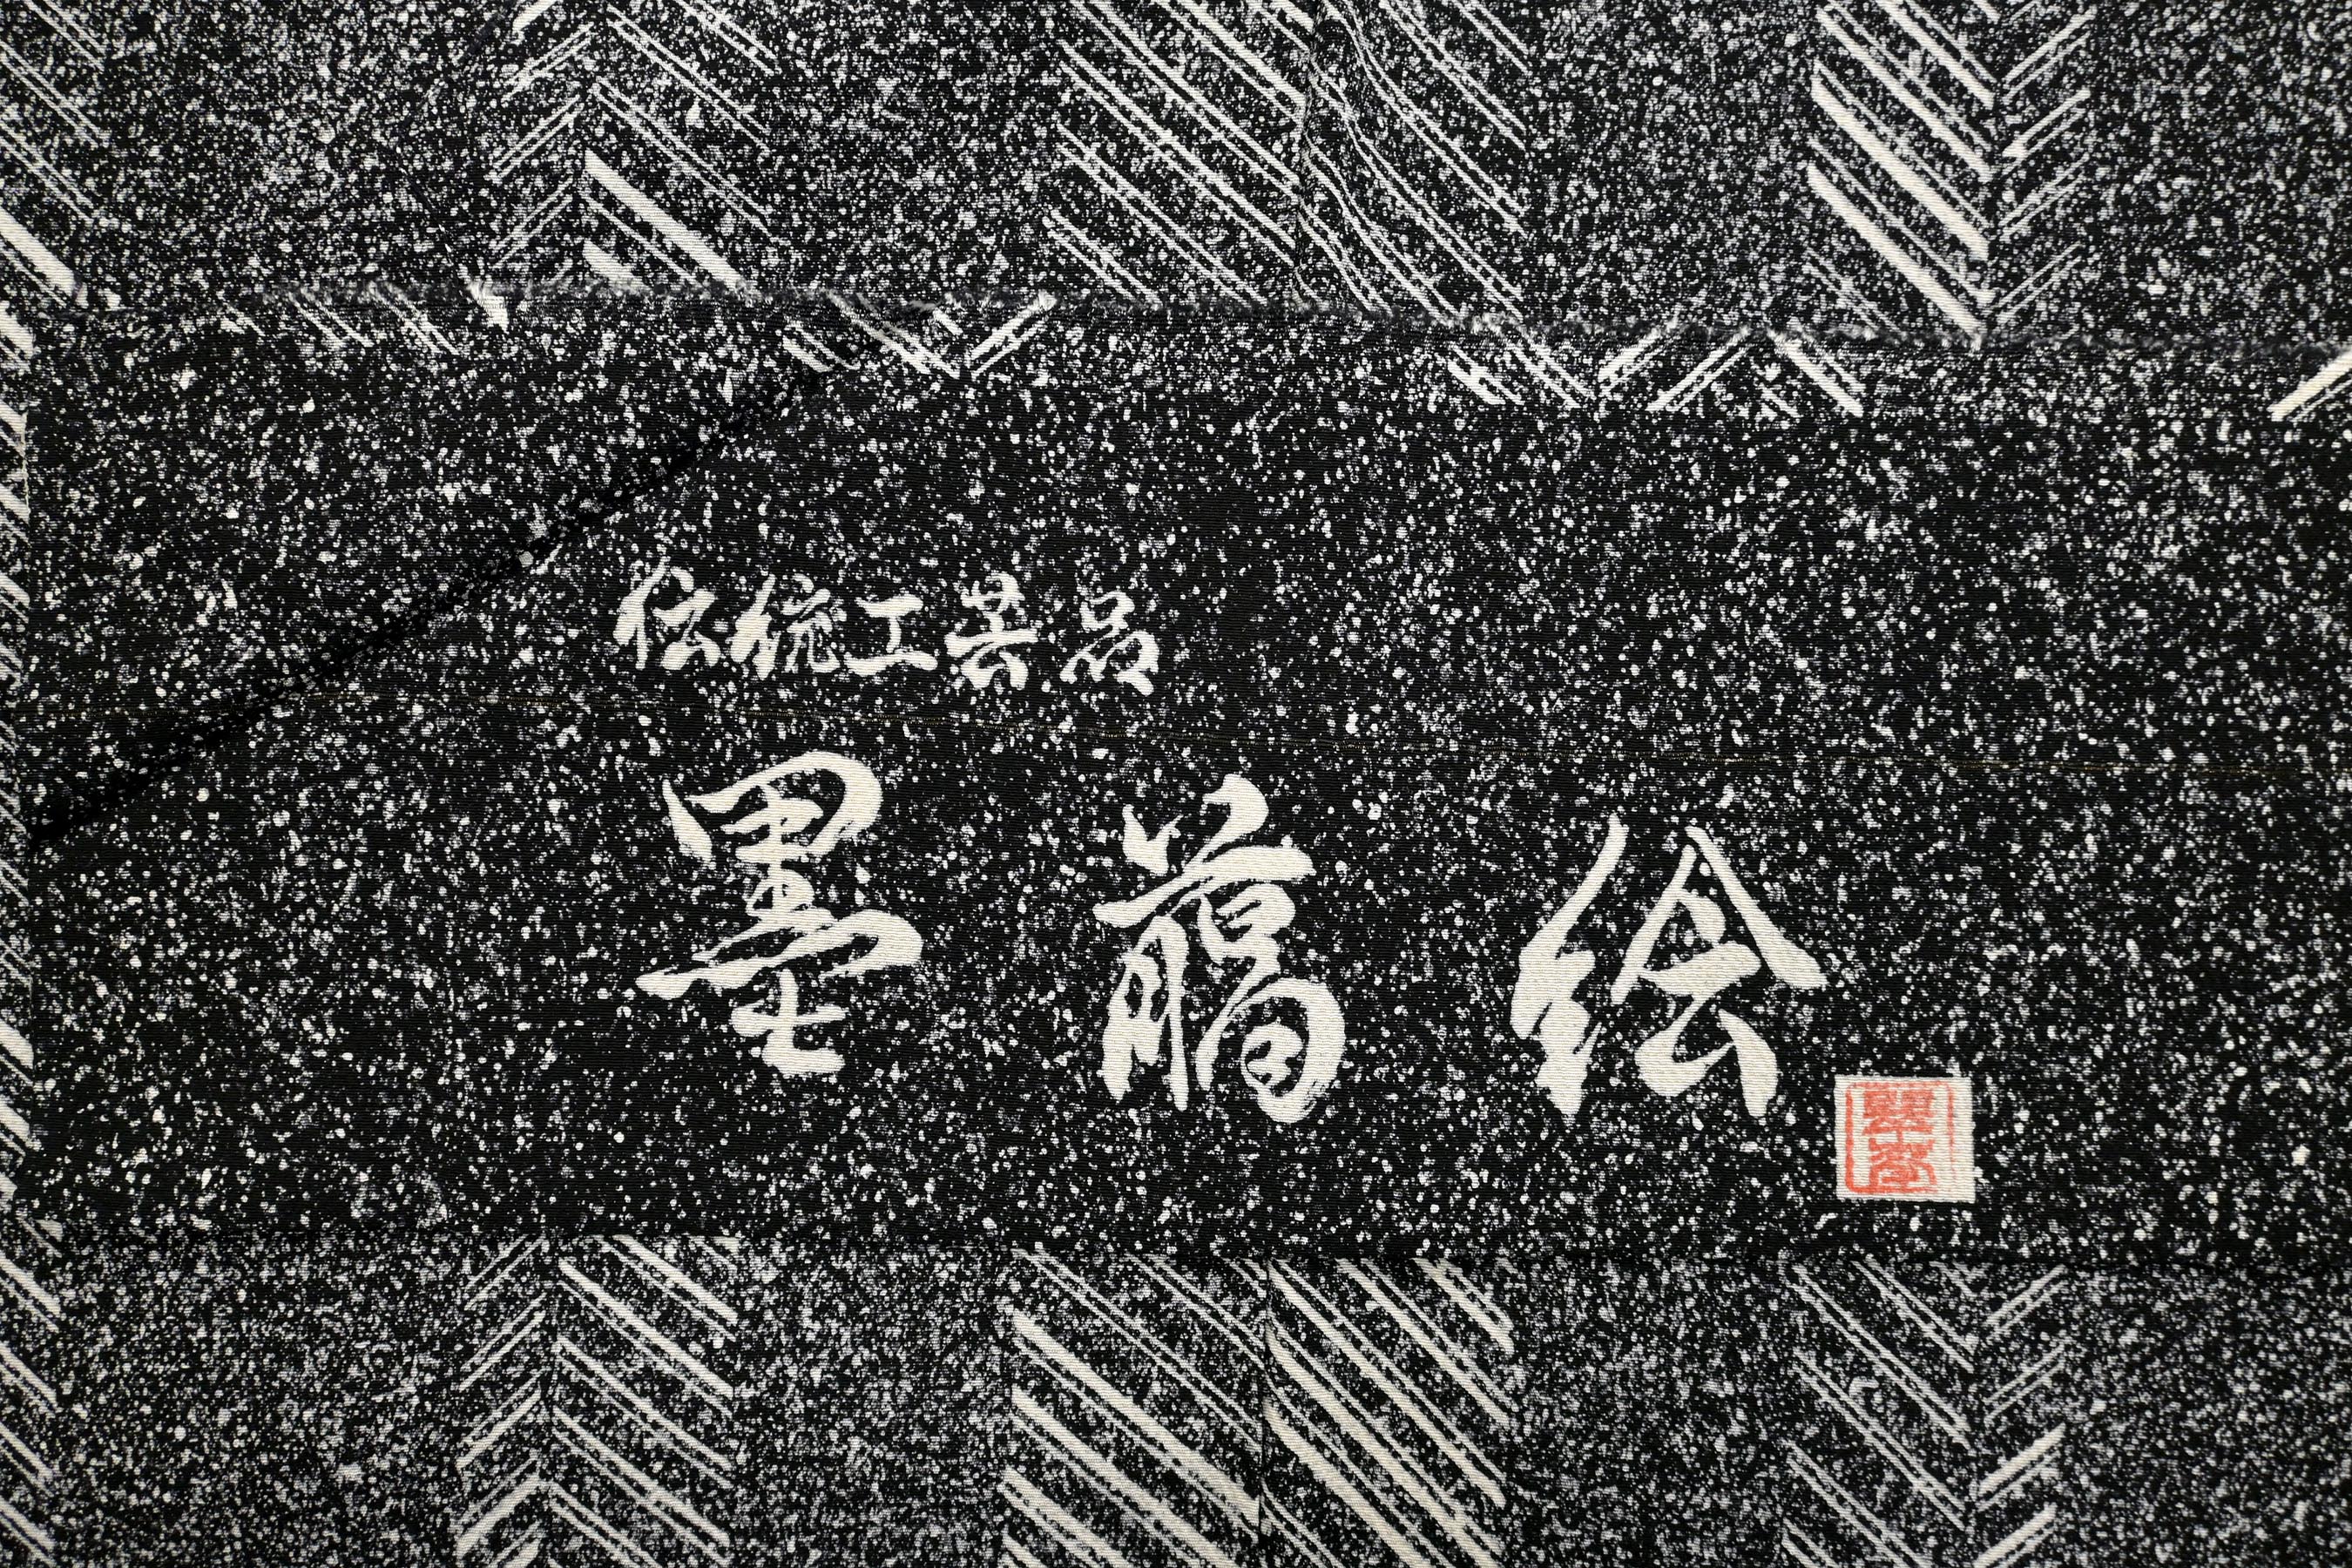 伝統工芸品
墨﨟絵